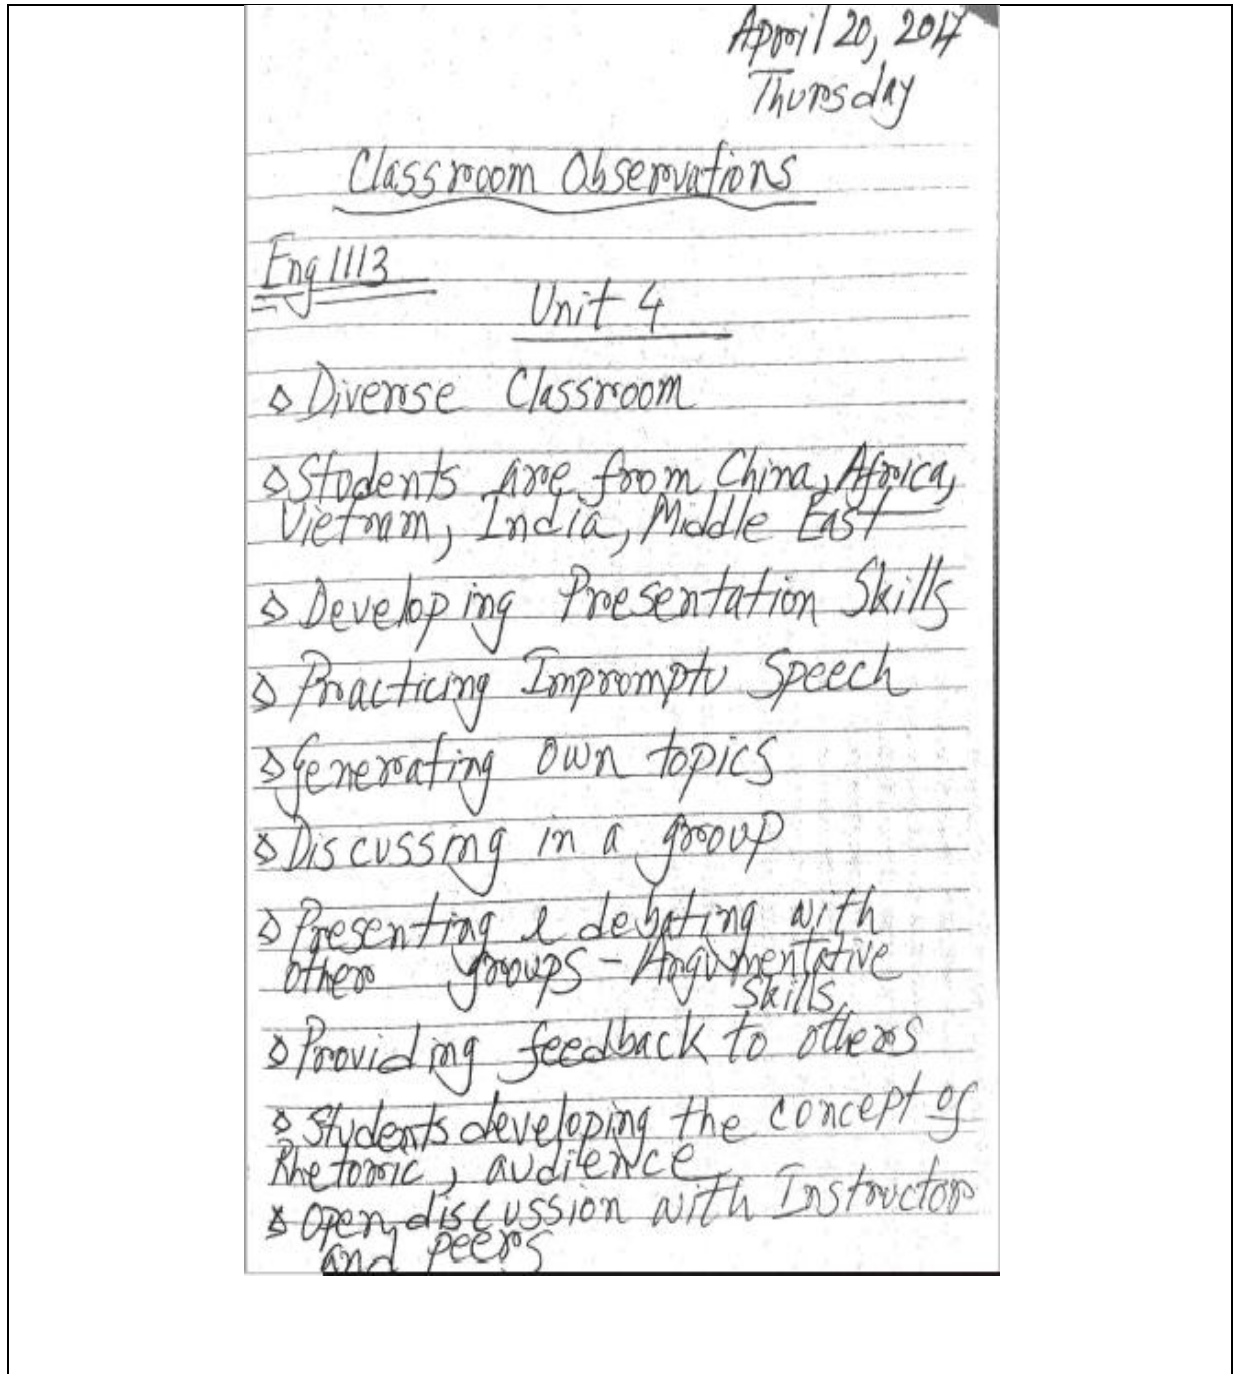 April 20, 2017
Thursday
Classroom Observations
Eng 1113
Unit 4
◊ Diverse Classroom
◊ Students are from China, Africa,
Vietnam, India, Middle East
◊ Developing Presentation Skills
◊ Practicing Impromptu Speech
◊ Generating own topics
◊ Discussing in a group
◊ Presenting & debating with
other groups - Argumentative
Skills
◊ Providing feedback to others
◊ Students developing the concept of
Rhetoric, audience
◊ Open discussion with Instructor
and peers